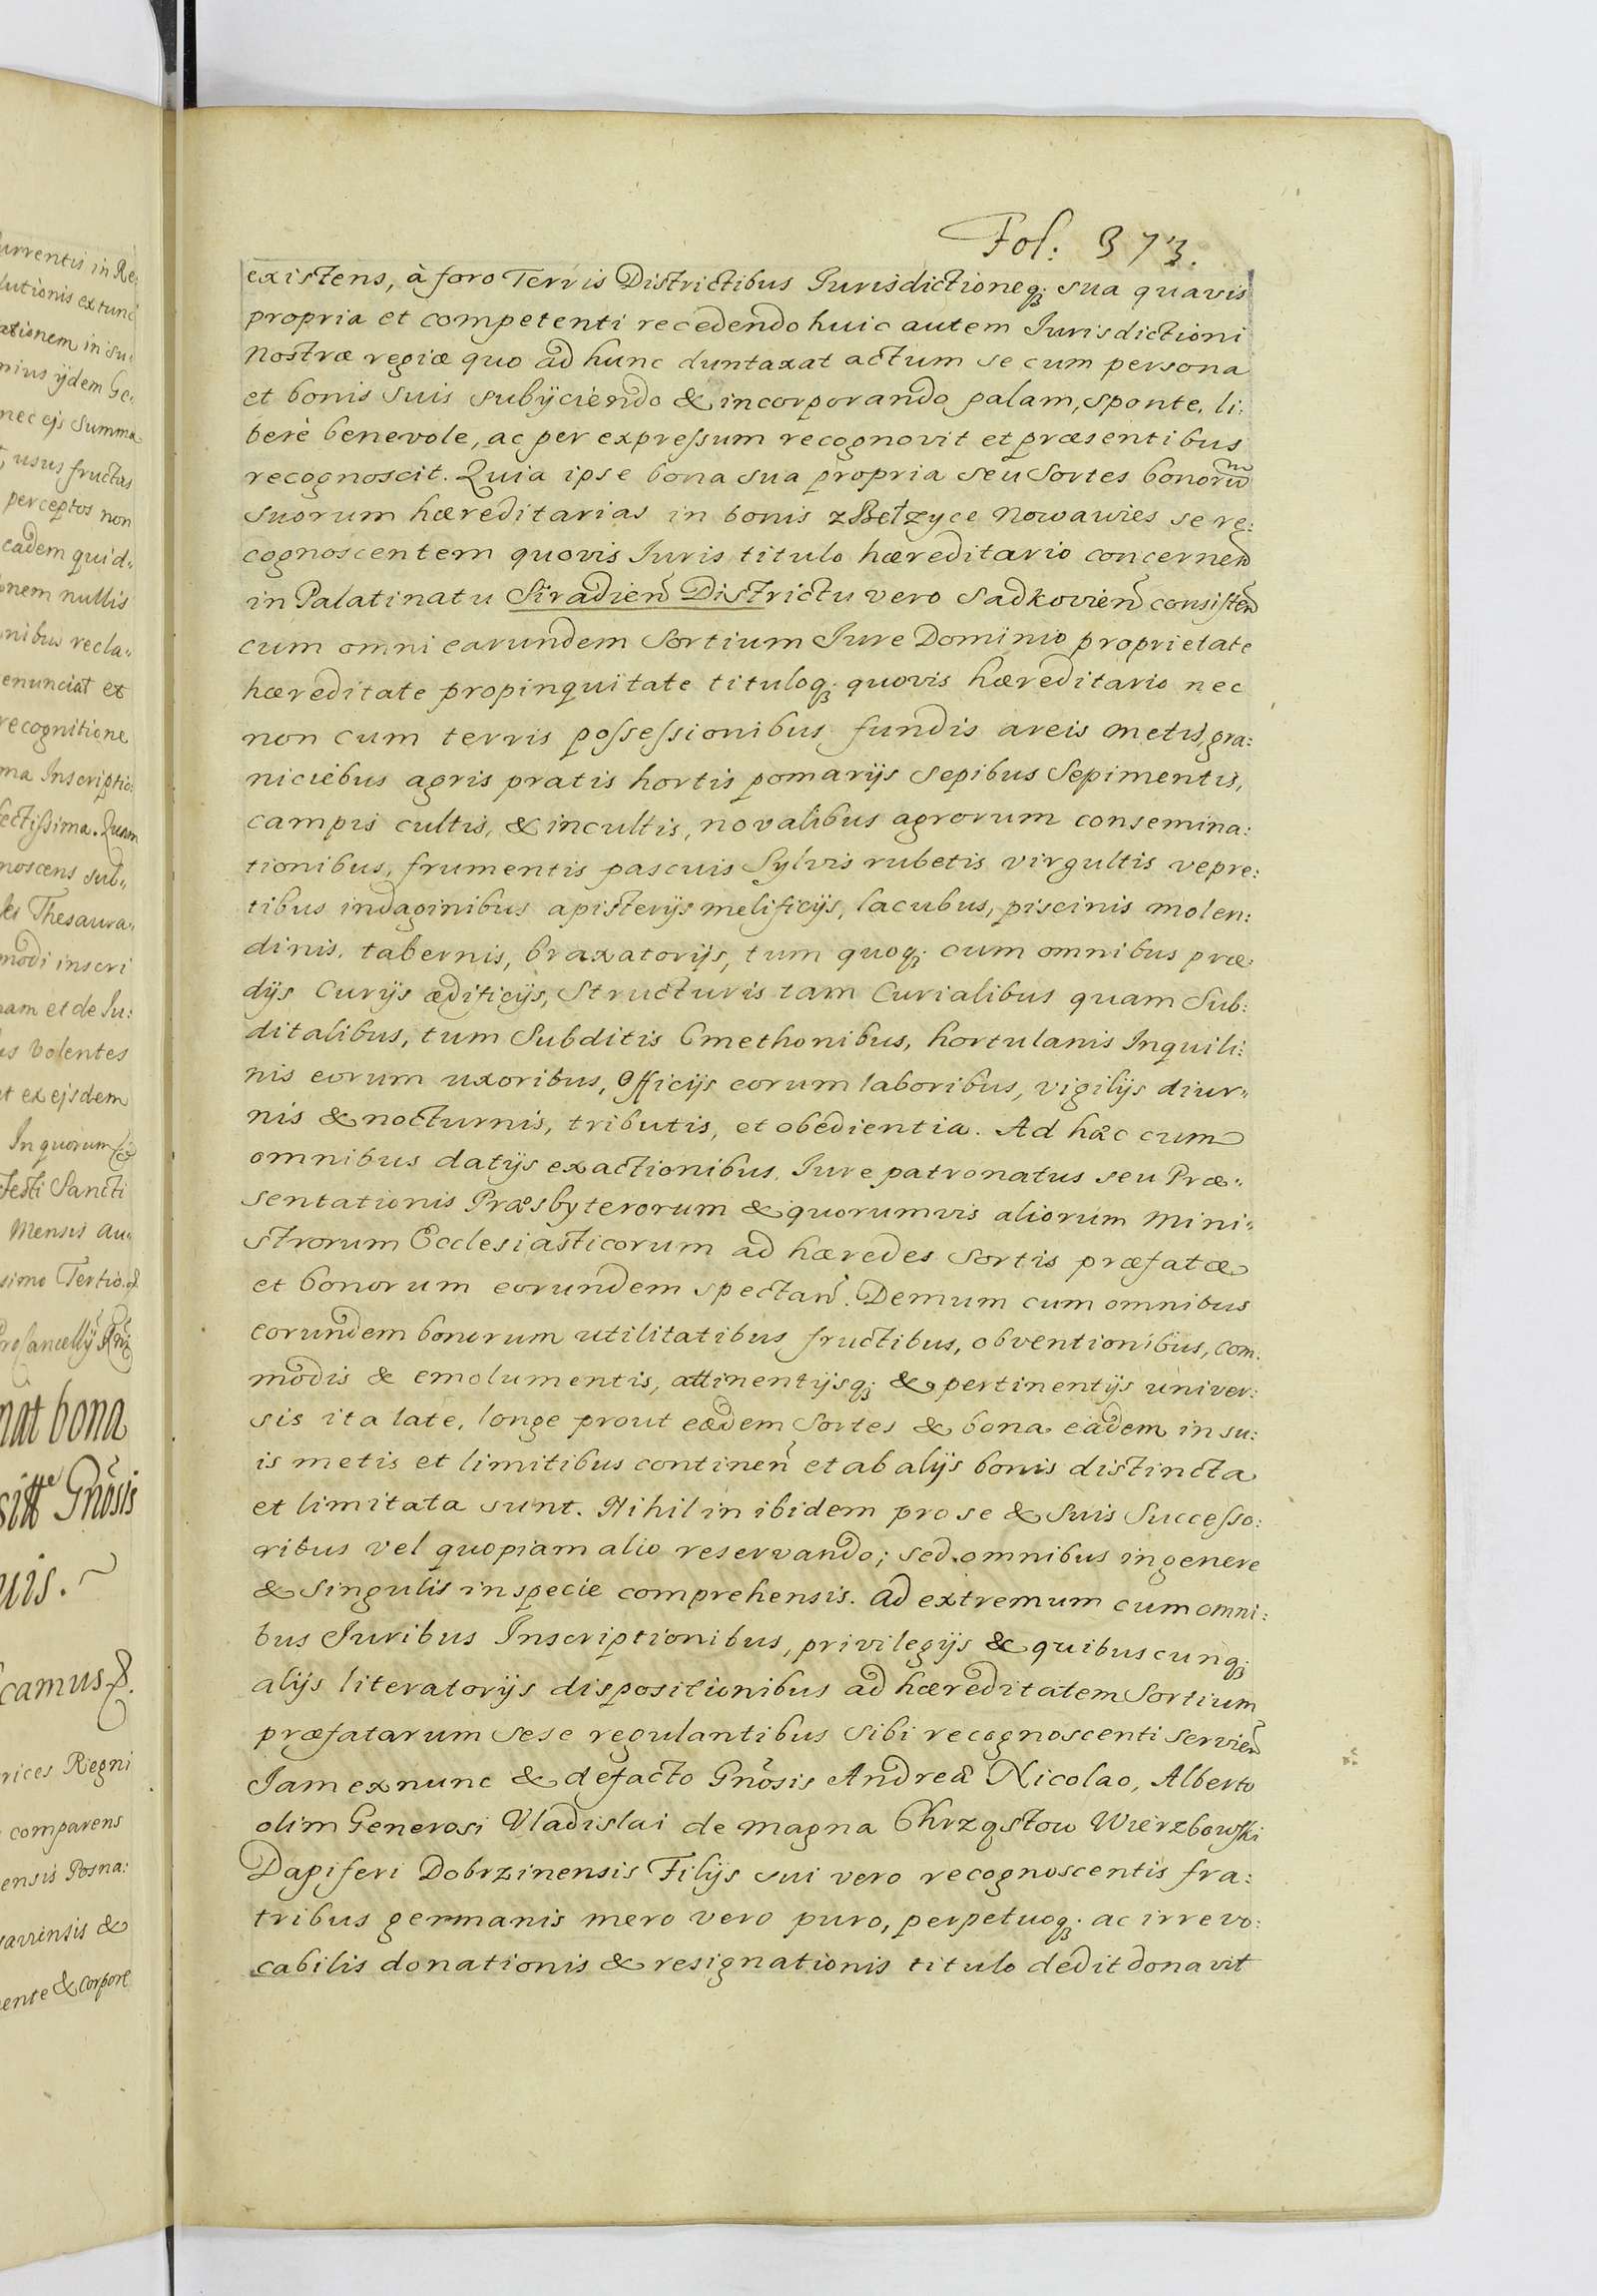 Fol: 373.
existens, à foro Terris Districtibus Jurisdictioneq; sua quavis
propria et competenti recedendo huic autem Jurisdictioni
Nostræ regiæ quo ad hunc duntaxat actum se cum persona
et bonis suis subijciendo & incorporando palam, sponte, li:
berè benevole, ac per expressum recognovit et præsentibus
recognoscit. Quia ipse bona sua propria seu Sortes bonorũ
suorum hæreditarias in bonis zBełzyce Nowawies se re:
cognoscentem quovis Juris titulo hæreditario concernen̄
in Palatinatu Siradien̄ Districtu vero Sadkovien̄ consisten̄
cum omni earundem Sortium Jure Dominio proprietate
hæreditate propinquitate tituloq; quovis hæreditario nec
non cum terris possessionibus fundis areis metis, gra:
niciebus agris pratis hortis pomarijs sepibus Sepimentis,
campis cultis, & incultis, novalibus agrorum consemina:
tionibus, frumentis pascuis Sylvis rubetis virgultis vepre:
tibus indaginibus apisterijs melificijs, lacubus, piscinis molen:
dinis, tabernis, braxatorijs, tum quoq; cum omnibus præ:
dijs Curijs ædificijs, Structuris tam Curialibus quam Sub:
ditalibus, tum Subditis Cmethonibus, hortulanis Inquili:
nis eorum uxoribus, Officijs eorum laboribus, vigilijs diur:
nis & nocturnis, tributis, et obedientia. Ad hæc cum
omnibus datijs exactionibus, Jure patronatus seu Præ:
sentationis Præsbyterorum & quorumvis aliorum Mini:
strorum Ecclesiasticorum ad hæredes Sortis præfatæ
et bonorum eorundem spectan̄. Demum cum omnibus
eorundem bonorum utilitatibus fructibus, obventionibus, com:
modis & emolumentis, attinentijsq; & pertinentijs univer:
sis ita late, longe prout eædem Sortes & bona eadem in su:
is metis et limitibus continen̄ et ab alijs bonis distincta
et limitata sunt. Nihil in ibidem pro se & Suis Successo:
ribus vel quopiam alio reservando; sed omnibus in genere
& Singulis in specie comprehensis. Ad extremum cum omni:
bus Juribus Inscriptionibus, privilegijs & quibuscunq;
alijs literatorijs dispositionibus ad hæreditatem Sortium
præfatarum sese regulantibus Sibi recognoscenti Servien̄
Jam ex nunc & defacto Gn̄osis Andreæ Nicolao, Alberto
olim Generosi Vladislai de magna Chrząstow Wierzbowski
Dapiferi Dobrzinensis Filijs sui vero recognoscentis fra:
tribus germanis mero vero puro, perpetuoq; ac irrevo:
cabilis donationis & resignationis titulo dedit donavit